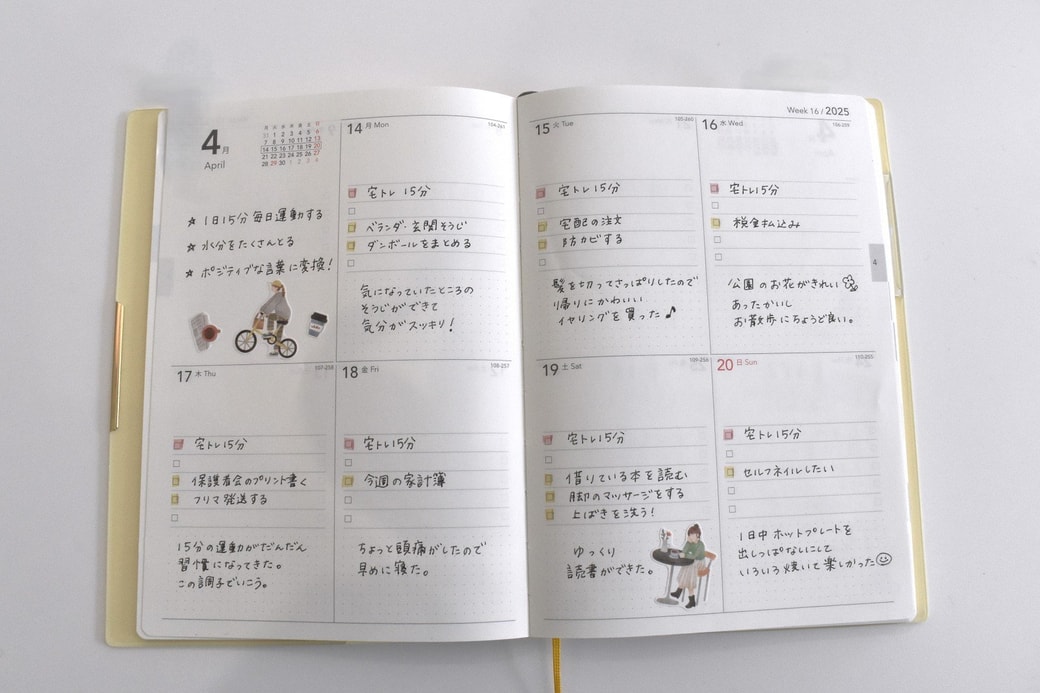 4月
April
月 火 水 木 金 土 日
31 1 2 3 4 5 6
7 8 9 10 11 12 13
14 15 16 17 18 19 20
21 22 23 24 25 26 27
28 29 30 1 2 3 4
☆ 1日15分 毎日運動する
☆ 水分をたくさんとる
☆ ポジティブな言葉に変換!
14 月 Mon
104-261
宅トレ 15分
ベランダ・玄関そうじ
ダンボールをまとめる
気になっていたところの
そうじができて
気分がスッキリ!
15 火 Tue
105-260
宅トレ 15分
宅配の注文
防カビする
髪を切ってさっぱりしたので
帰りにかわいい
イヤリングを買った♪
Week 16 / 2025
16 水 Wed
106-259
宅トレ15分
税金払込み
公園のお花がきれい
あったかいし
お散歩にちょうど良い。
4
17 木 Thu
107-258
宅トレ15分
保護者会のプリント書く
フリマ発送する
15分の運動がだんだん
習慣になってきた。
この調子でいこう。
18 金 Fri
108-257
宅トレ15分
今週の家計簿
ちょっと頭痛がしたので
早めに寝た。
19 土 Sat
109-256
宅トレ15分
借りている本を読む
脚のマッサージをする
上ばきを洗う!
ゆっくり
読書ができた。
20 日 Sun
110-255
宅トレ15分
セルフネイルしたい
1日中ホットプレートを
出しっぱなしにして
いろいろ焼いて楽しかった